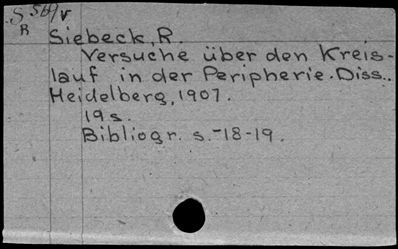 S 569v
R
Siebeck, R.
Versuche über den Kreis-
lauf in der Peripherie. Diss..
Heidelberg, 1907.
19 s.
Bibliogr. s.-18-19.